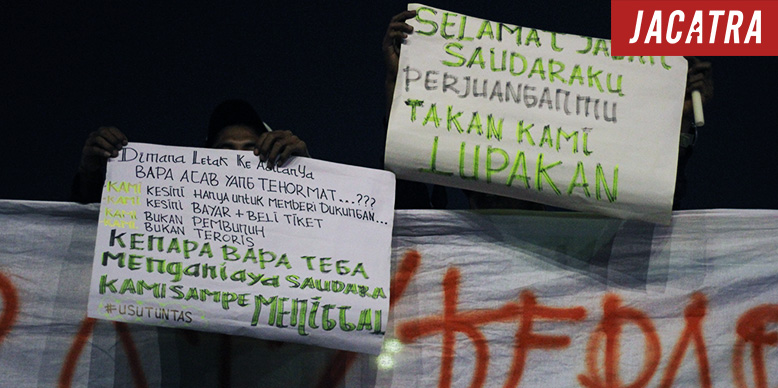 JACATRA
SELAMAT JALAN
SAUDARAKU
PERJUANGANMU
TAKAN KAMI
LUPAKAN
Dimana Letak KeAdilanya
BAPA ACAB YANG TEHORMAT...???
-KAMI KESINI HANYA UNTUK MEMBERI DUKUNGAN...
-KAMI KESINI BAYAR + BELI TIKET
-KAMI BUKAN PEMBUNUH
-KAMI BUKAN TERORIS
KENAPA BAPA TEGA
MENGANIAYA SAUDARA
KAMI SAMPE MENINGGAL
#USUTUNTAS